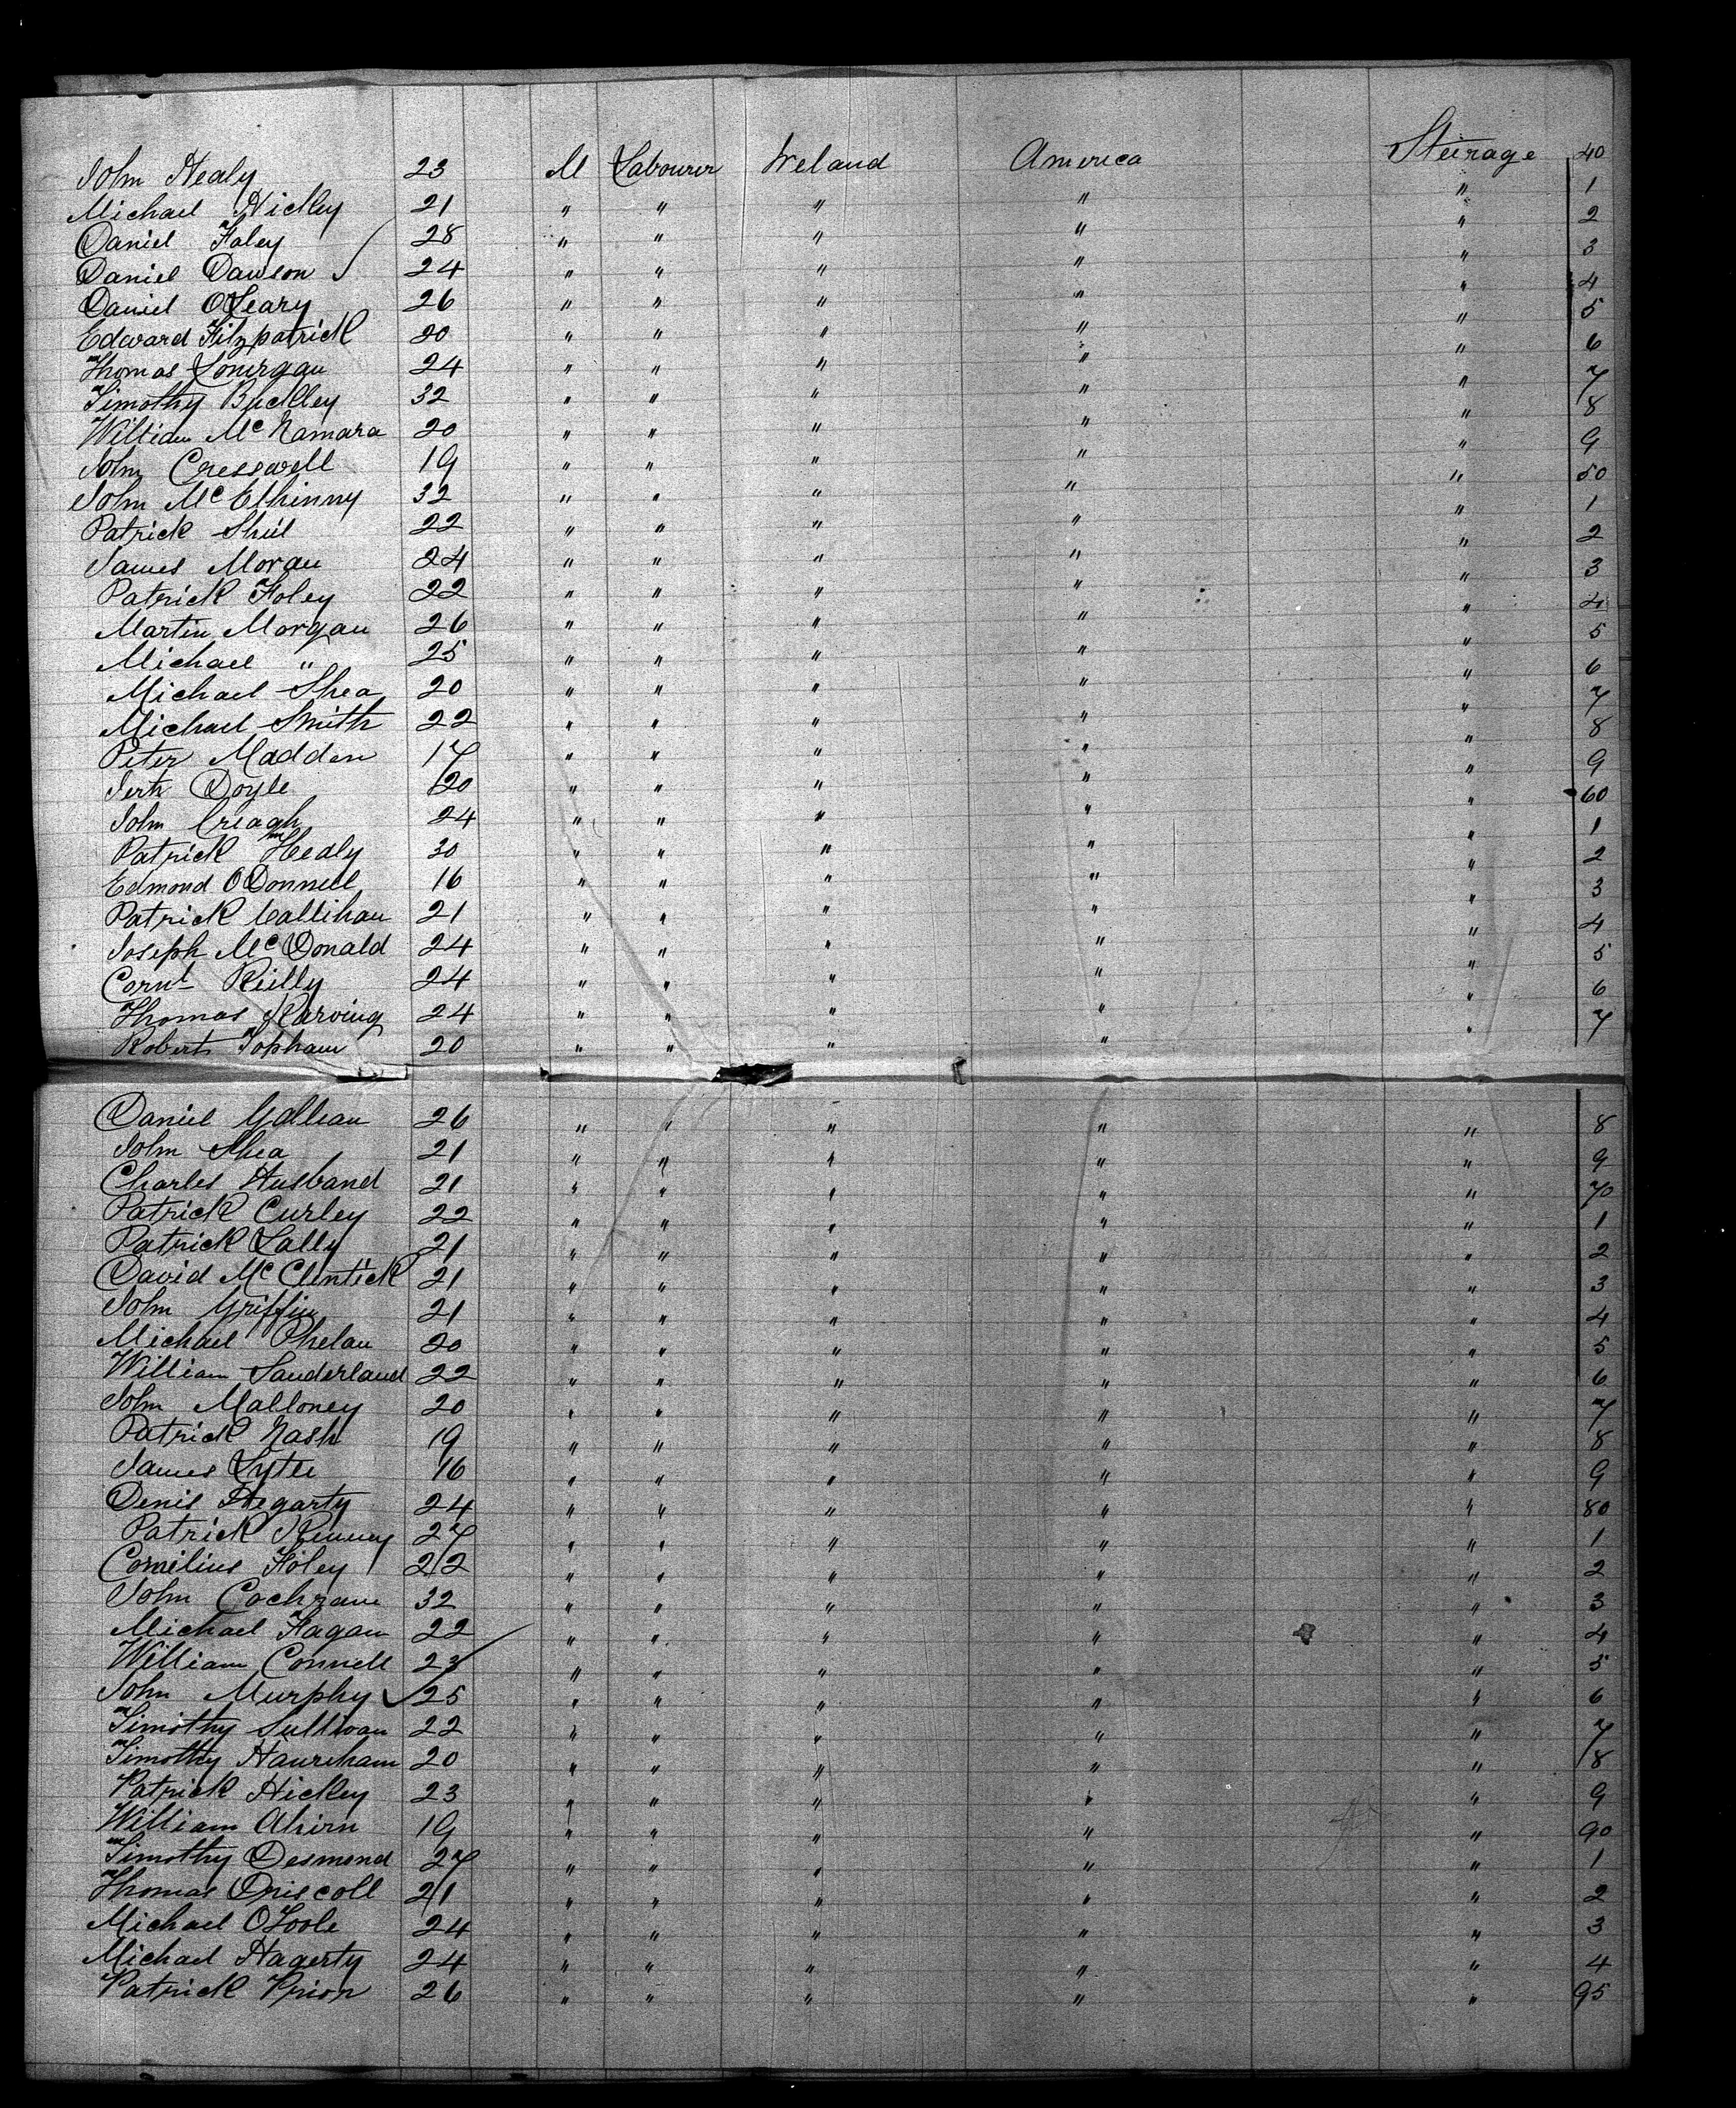 John Healy 23 M Labourer Ireland America Steerage 40
Michael Hickey 21 " " " " " 1
Daniel Foley 28 " " " " " 2
Daniel Dawson 24 " " " " " 3
Daniel O'Leary 26 " " " " " 4
Edward Fitzpatrick 20 " " " " " 5
Thomas Lonergan 24 " " " " " 6
Timothy Buckley 32 " " " " " 7
William McNamara 20 " " " " " 8
John Cresswell 19 " " " " " 9
John McElhinny 32 " " " " " 50
Patrick Shiel 22 " " " " " 1
James Moran 24 " " " " " 2
Patrick Foley 22 " " " " " 3
Martin Morgan 26 " " " " " 4
Michael " 25 " " " " " 5
Michael Shea 20 " " " " " 6
Michael Smith 22 " " " " " 7
Peter Madden 17 " " " " " 8
Doyle 20 " " " " " 9
John Creagh 24 " " " " " 60
Patrick Healy 30 " " " " " 1
Edmond O'Donnell 16 " " " " " 2
Patrick Callihan 21 " " " " " 3
Joseph McDonald 24 " " " " " 4
Cornl Reilly 24 " " " " " 5
Thomas 24 " " " " " 6
Robert Topham 20 " " " " " 7
Daniel 26 " " " " " 8
John Shea 21 " " " " " 9
Charles Husband 21 " " " " " 70
Patrick Curley 22 " " " " " 1
Patrick Lally 21 " " " " " 2
David McClintick 21 " " " " " 3
John Griffin 21 " " " " " 4
Michael Phelan 20 " " " " " 5
William Sanderland 22 " " " " " 6
John Malloney 20 " " " " " 7
Patrick Nash 19 " " " " " 8
James 16 " " " " " 9
Denis Hegarty 24 " " " " " 80
Patrick Kenny 27 " " " " " 1
Cornelius Foley 22 " " " " " 2
John Cochrane 32 " " " " " 3
Michael Fagan 22 " " " " " 4
William Connell 23 " " " " " 5
John Murphy 25 " " " " " 6
Timothy Sullivan 22 " " " " " 7
Timothy 20 " " " " " 8
Patrick Hickey 23 " " " " " 9
William Ahirn 19 " " " " " 90
Timothy Desmond 27 " " " " " 1
Thomas Driscoll 21 " " " " " 2
Michael O'Toole 24 " " " " " 3
Michael Hagerty 24 " " " " " 4
Patrick Prior 26 " " " " " 95